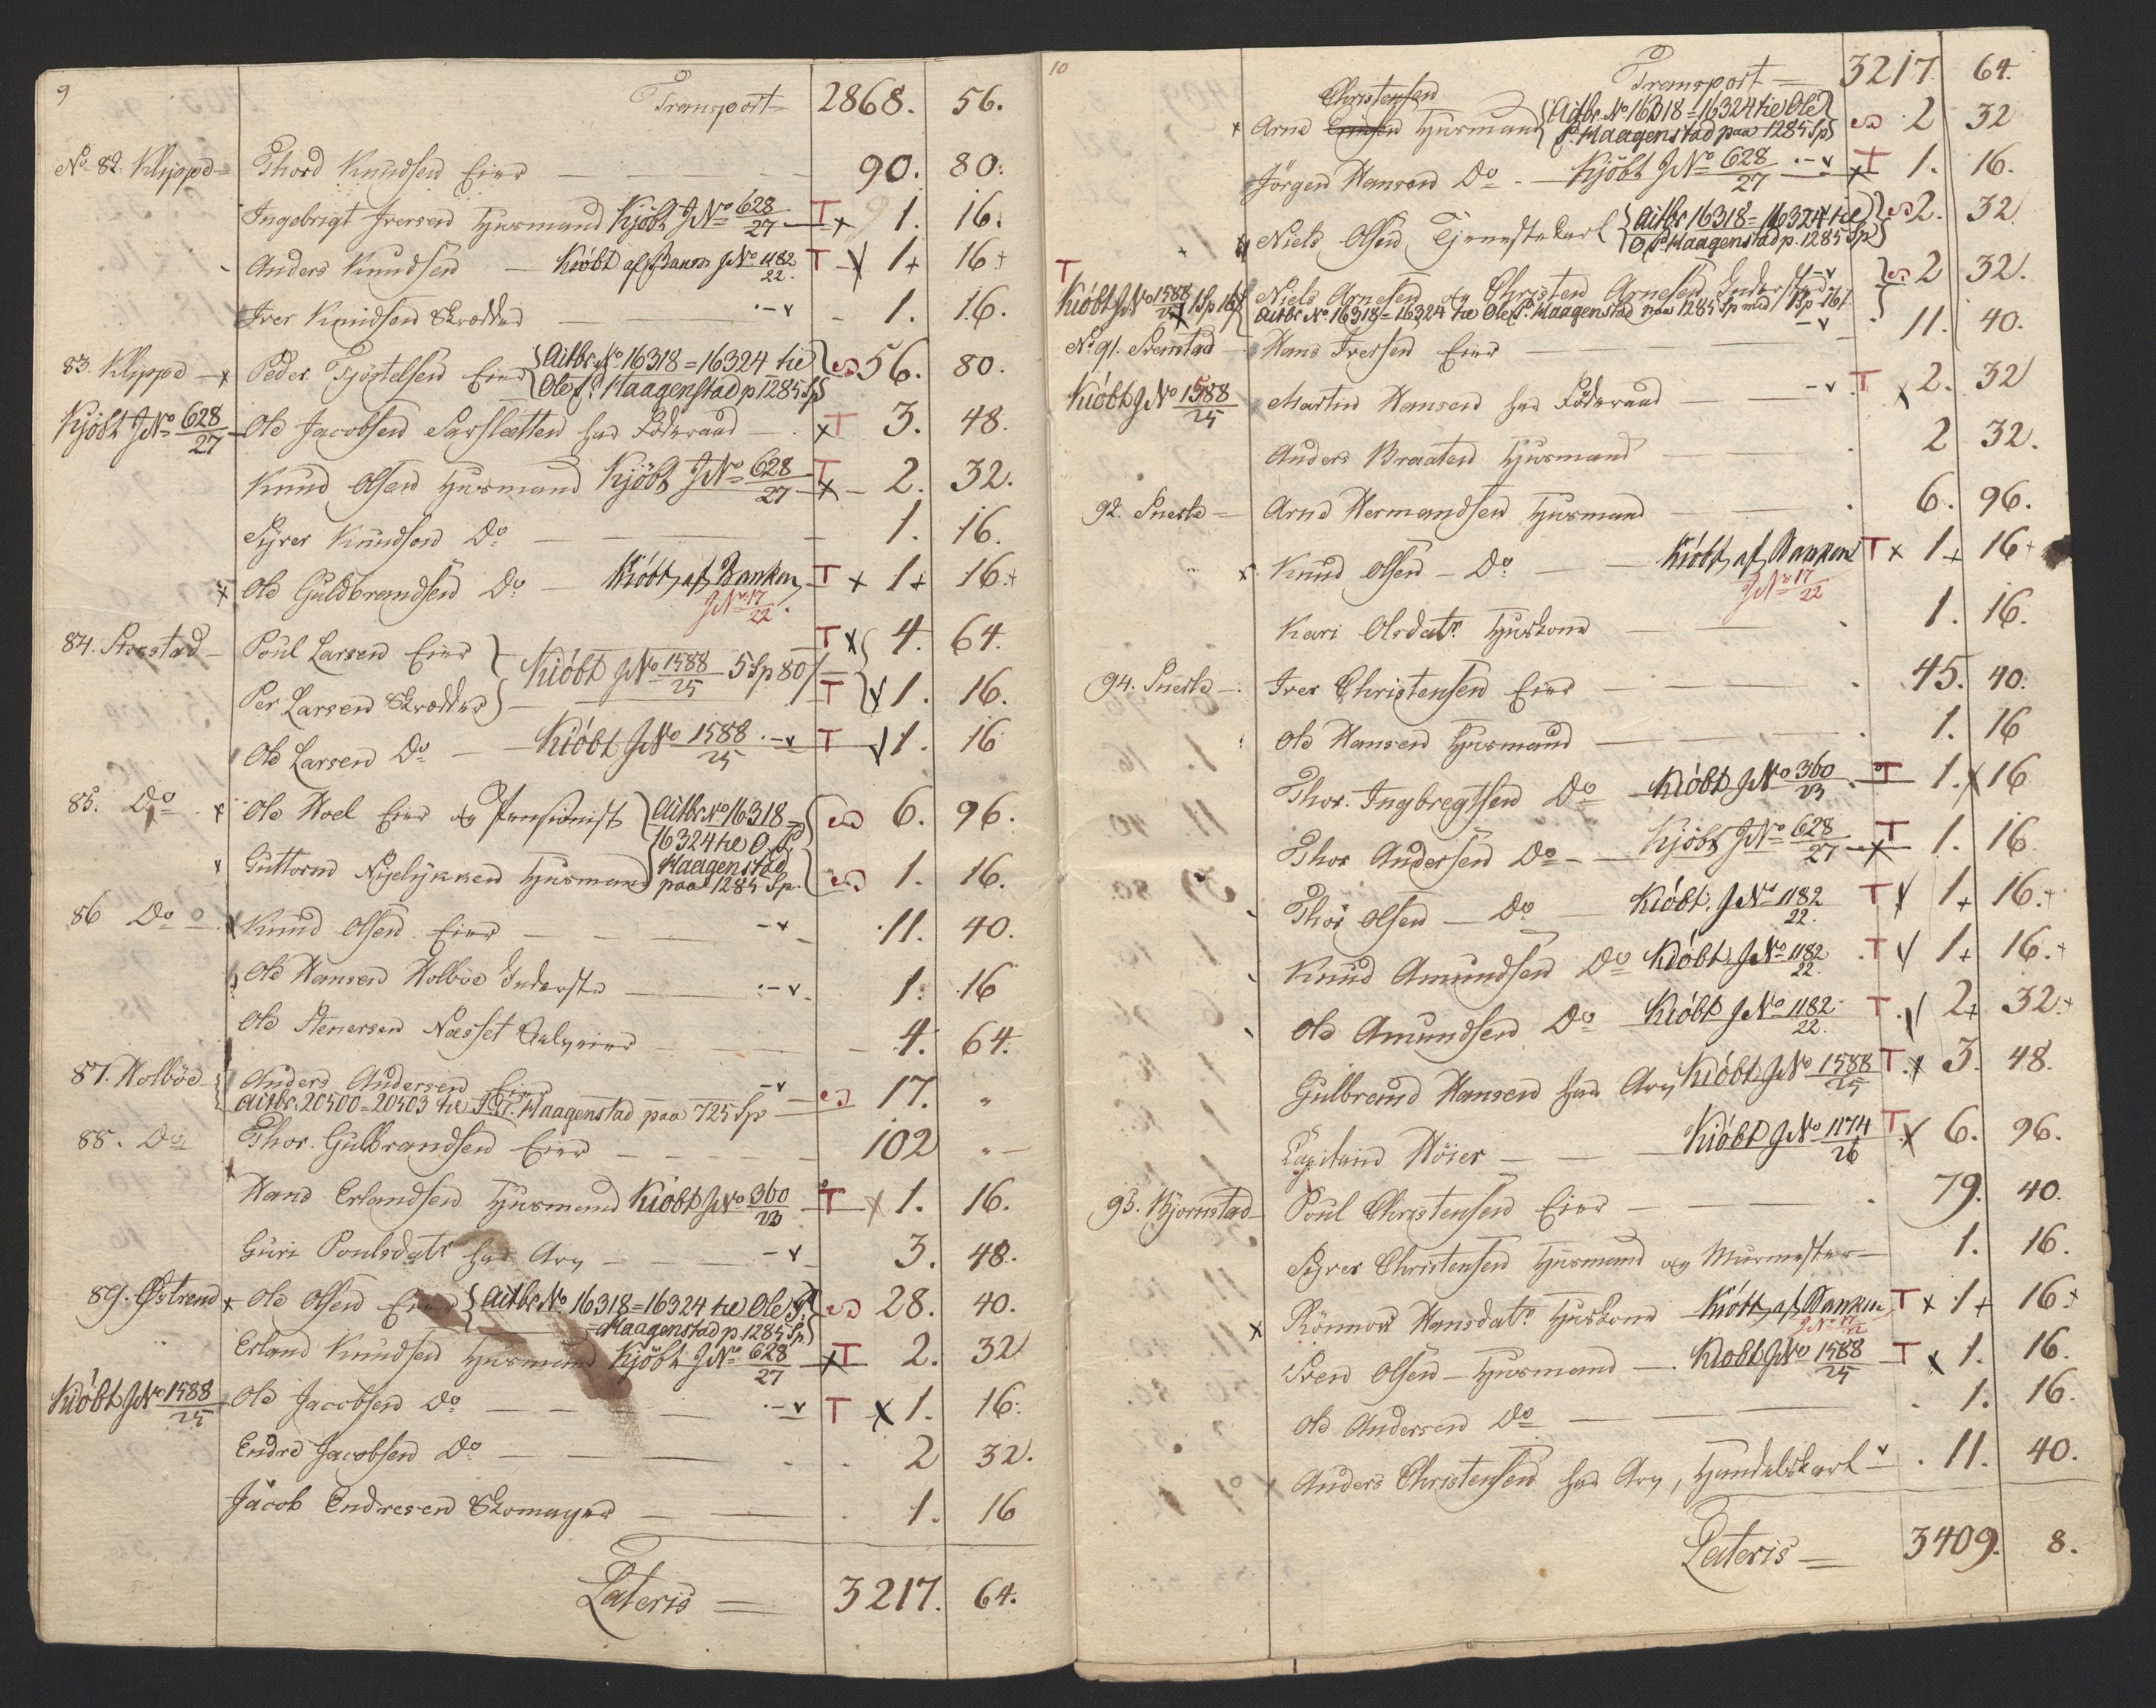 9
Transport 2868. 56.
No 82. Klippe Thord Knudsen Eier 90. 80.
Ingebrigt Iversen Huusmand Kjöbt JNo 628/27 T x 1. 16.
Anders Knudsen Kiöbt af Banen JNo 1182/22. T 1+ 16+
Iver Knudsen Skrædder 1. 16.
83. Klippe x Peder Tjöstelsen Eier {Aitbr. No 16318=16324 til 56. 80.
Ole P. Haagenstad p 1285 Sp
Kjöbt JNo 628/27 Ole Jacobsen Sarsletten har Föderaad x T 3. 48.
Knud Olsen Huusmand Kjöbt JNo 628/27 T x 2. 32.
Syver Knudsen Do 1. 16.
x Ole Guldbrandsen Do Kiöbt af Banken T x 1+ 16+
JNo 17/22.
84. Storstad Poul Larsen Eier T x 4. 64.
Kiöbt JNo 1588/25 5 Sp 80
Per Larsen Skrædder T 1. 16.
Ole Larsen Do Kiöbt JNo 1588/25 T 1. 16
85. Do x Ole Hoel Eier og Pensionist Aitbr. No 16318= 6. 96.
16324 til O. P.
Guttorm Nyelykken Huusmand Haagenstad paa 1285 Sp. 1. 16.
86 Do Knud Olsen Eier 11. 40.
Ole Hansen Holböe Inderste 1. 16
Ole Stenersen Næsset Selveier 4. 64.
87. Holböe Anders Andersen Eier 17. "
Aitbr. 20500=20503 til Haagenstad paa 725 Sp
88. Do Thor Gulbrandsen Eier 102 "
Hans Erlandsen Huusmand Kiöbt JNo 360/23 T x 1. 16.
Guri Poulsdatr har Arv 3. 48.
89. Östrem x Ole Olsen Eier {Aitbr No 16318=16324 til Ole P. 28. 40.
Haagenstad p. 1285 Sp.
Erland Knudsen Huusmand Kjöbt JNo 628/27 x T 2. 32
Kiöbt JNo 1588/25 Ole Jacobsen Do T x 1. 16.
Endre Jacobsen Do 2 32.
Jacob Endresen Skomager 1. 16
Lateris 3217. 64.
10
Transport 3217. 64.
Christensen
x Arne Huusmand {Aitbr. No 16318=16324 til Ole 2 32
P. Haagenstad paa 1285 Sp
Jörgen Hansen Do Kjöbt JNo 628/27 x T 1. 16.
Niels Olsen Tjenestekarl {Aitbr 16318=16324 til 2. 32
O. P. Haagenstad p. 1285 Sp
T
Kiöbt JNo 1588/25 1 Sp 16 Niels Arnesen og Christen Arnesen Inderster 2 32.
Aitbr No 16318=16324 til Ole P. Haagenstad paa 1285 Sp med 1 Sp 16
No 91. Svenstad Hans Iversen Eier 11. 40.
Kiöbt JNo 1588/25 Martin Hansen har Föderaad T x 2. 32
Anders Braaten Huusmand 2 32.
92. Snerle Arne Hermandsen Huusmand 6. 96.
x Knud Olsen Do Kiöbt af Banken T x 1+ 16+
JNo 17/22
Kari Olsdatr Huuskone 1. 16.
94. Snerle Iver Christensen Eier 45. 40.
Ole Hansen Huusmand 1. 16
Thor Ingbregtsen Do Kiöbt JNo 360/23 T 1. x 16
Thor Andersen Do Kjöbt JNo 628/27 T x 1. 16.
Thor Olsen Do Kiöbt JNo 1182/22. T 1+ 16.+
Knud Amundsen Do Kiöbt JNo 1182/22. T 1+ 16.+
Ole Amundsen Do Kiöbt JNo 1182/22. T 2+ 32.+
Gulbrand Hansen har Arv Kiöbt JNo 1588/25 T x 3. 48.
Capitain Höier Kiöbt JNo 1174/26 T x 6. 96.
95. Bjornstad Poul Christensen Eier 79. 40.
Syver Christensen Huusmand og Muurmester 1. 16.
x Rönnow Hansdatr Huuskone Kiöbt af Banken T x 1+ 16+
JNo 17/22
Sven Olsen Huusmand Kiöbt JNo 1588/25 T x 1. 16.
Ole Andersen Do 1. 16.
Anders Christensen har Arv, Handelskarl 11. 40.
Lateris 3409. 8.